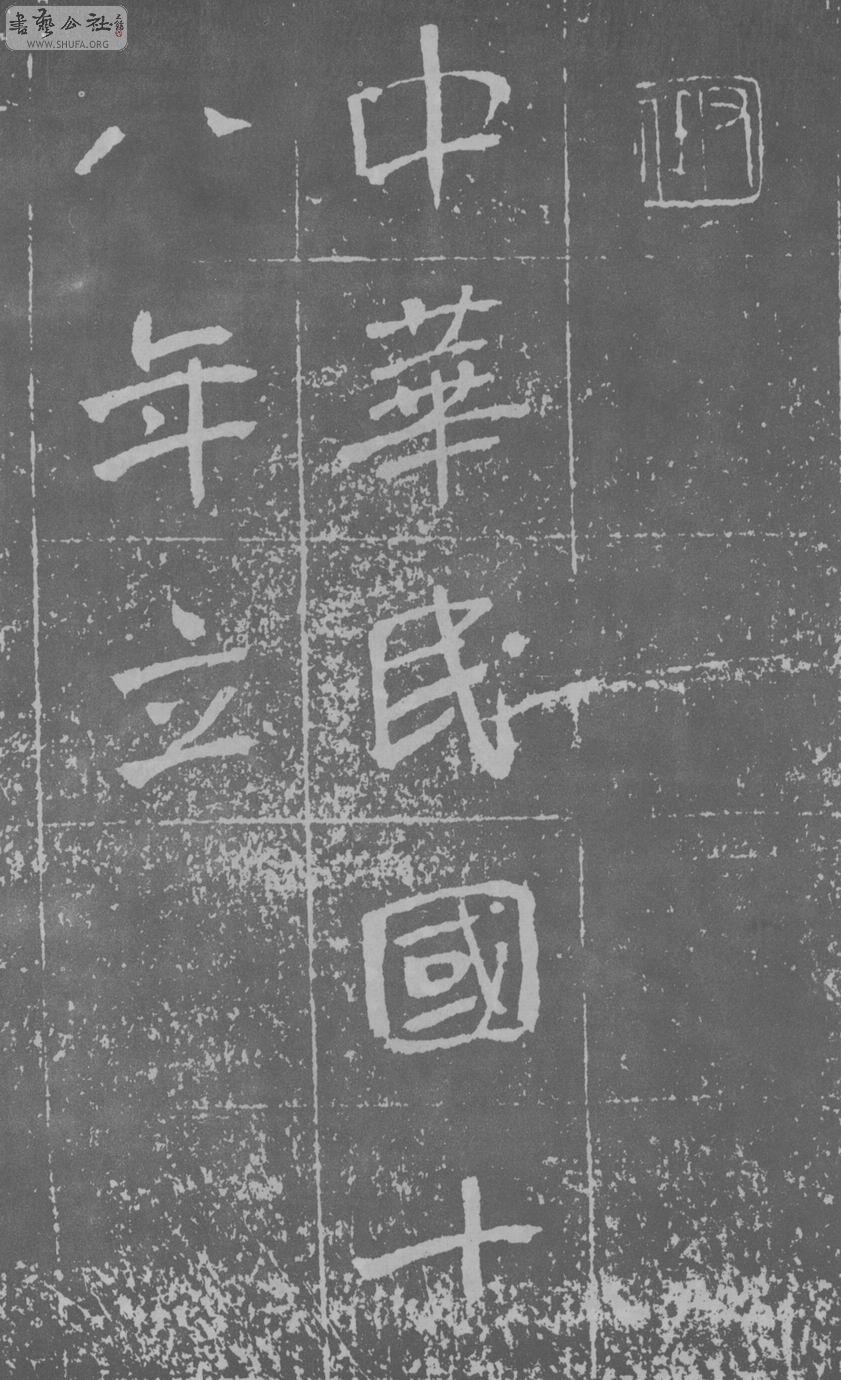 中華民國十
八年立
書藝公社
WWW.SHUFA.ORG